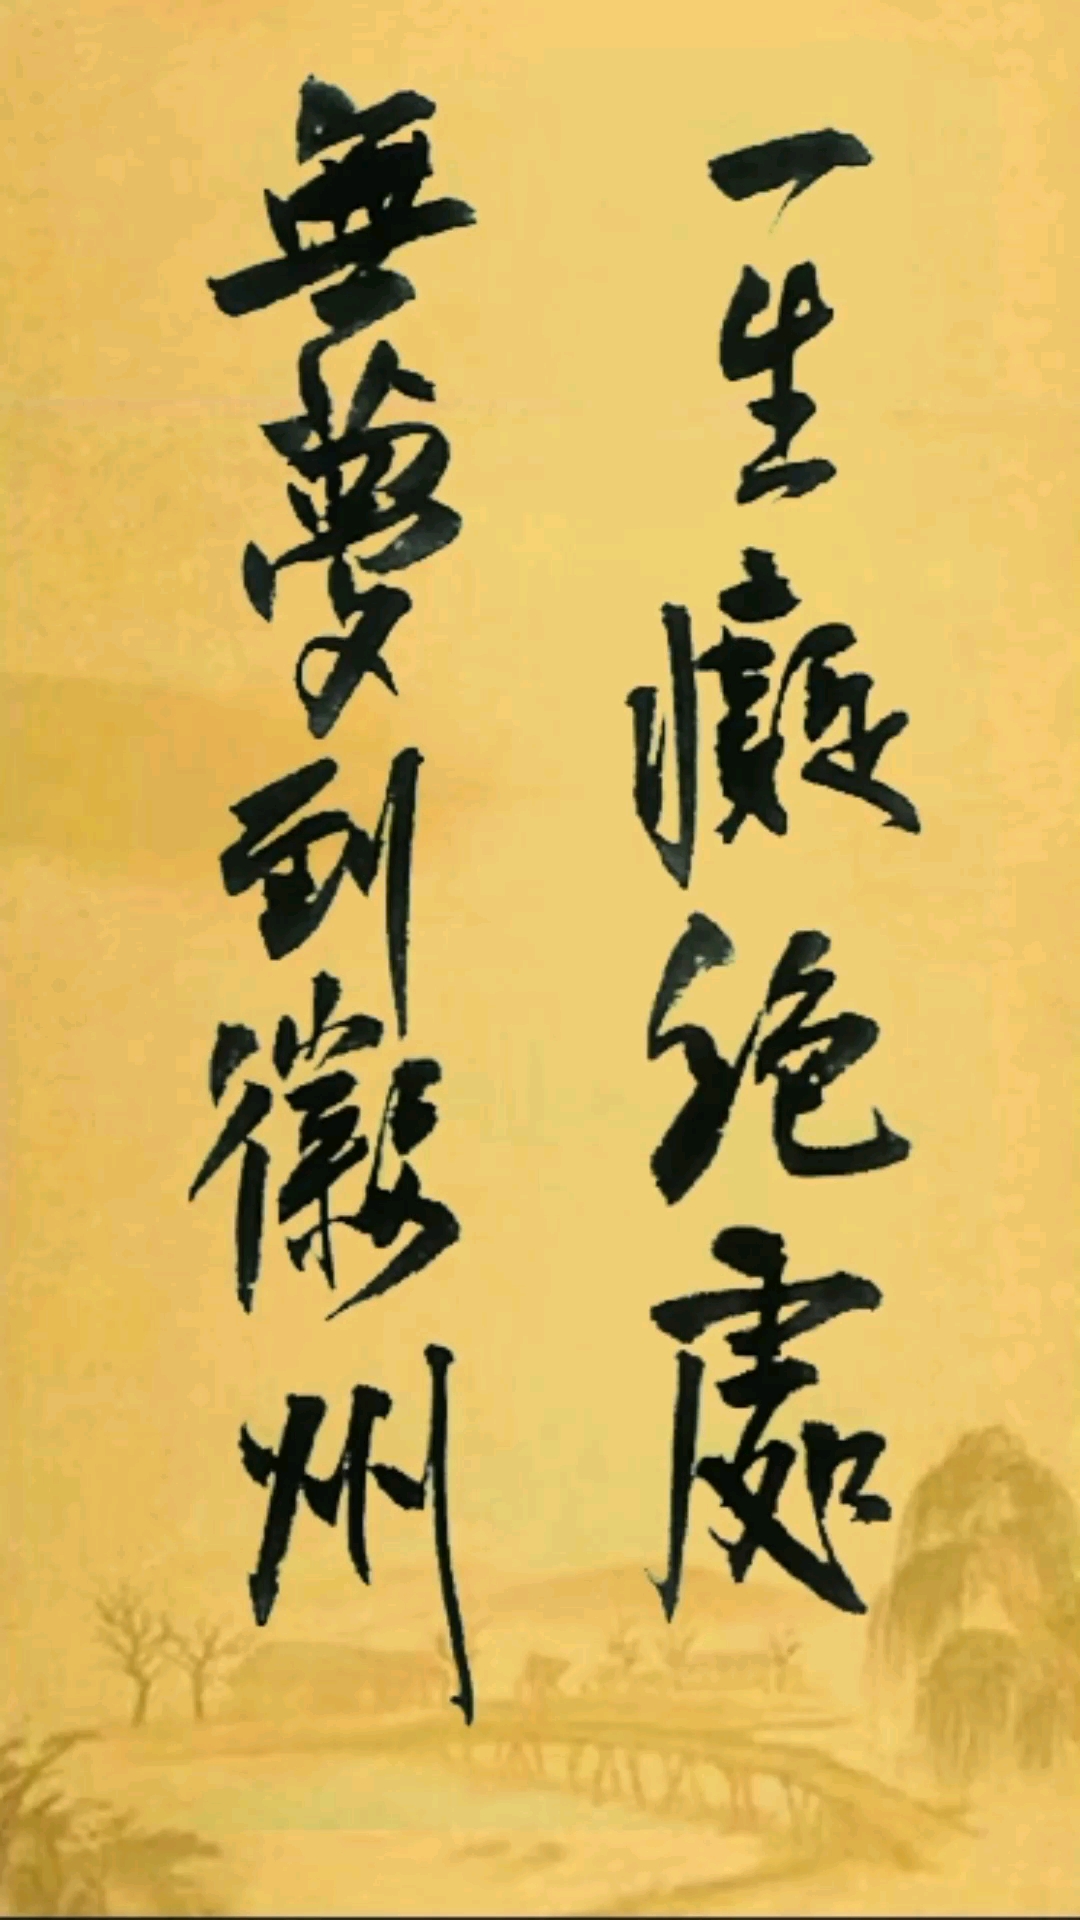 一生癡絶處
無夢到徽州